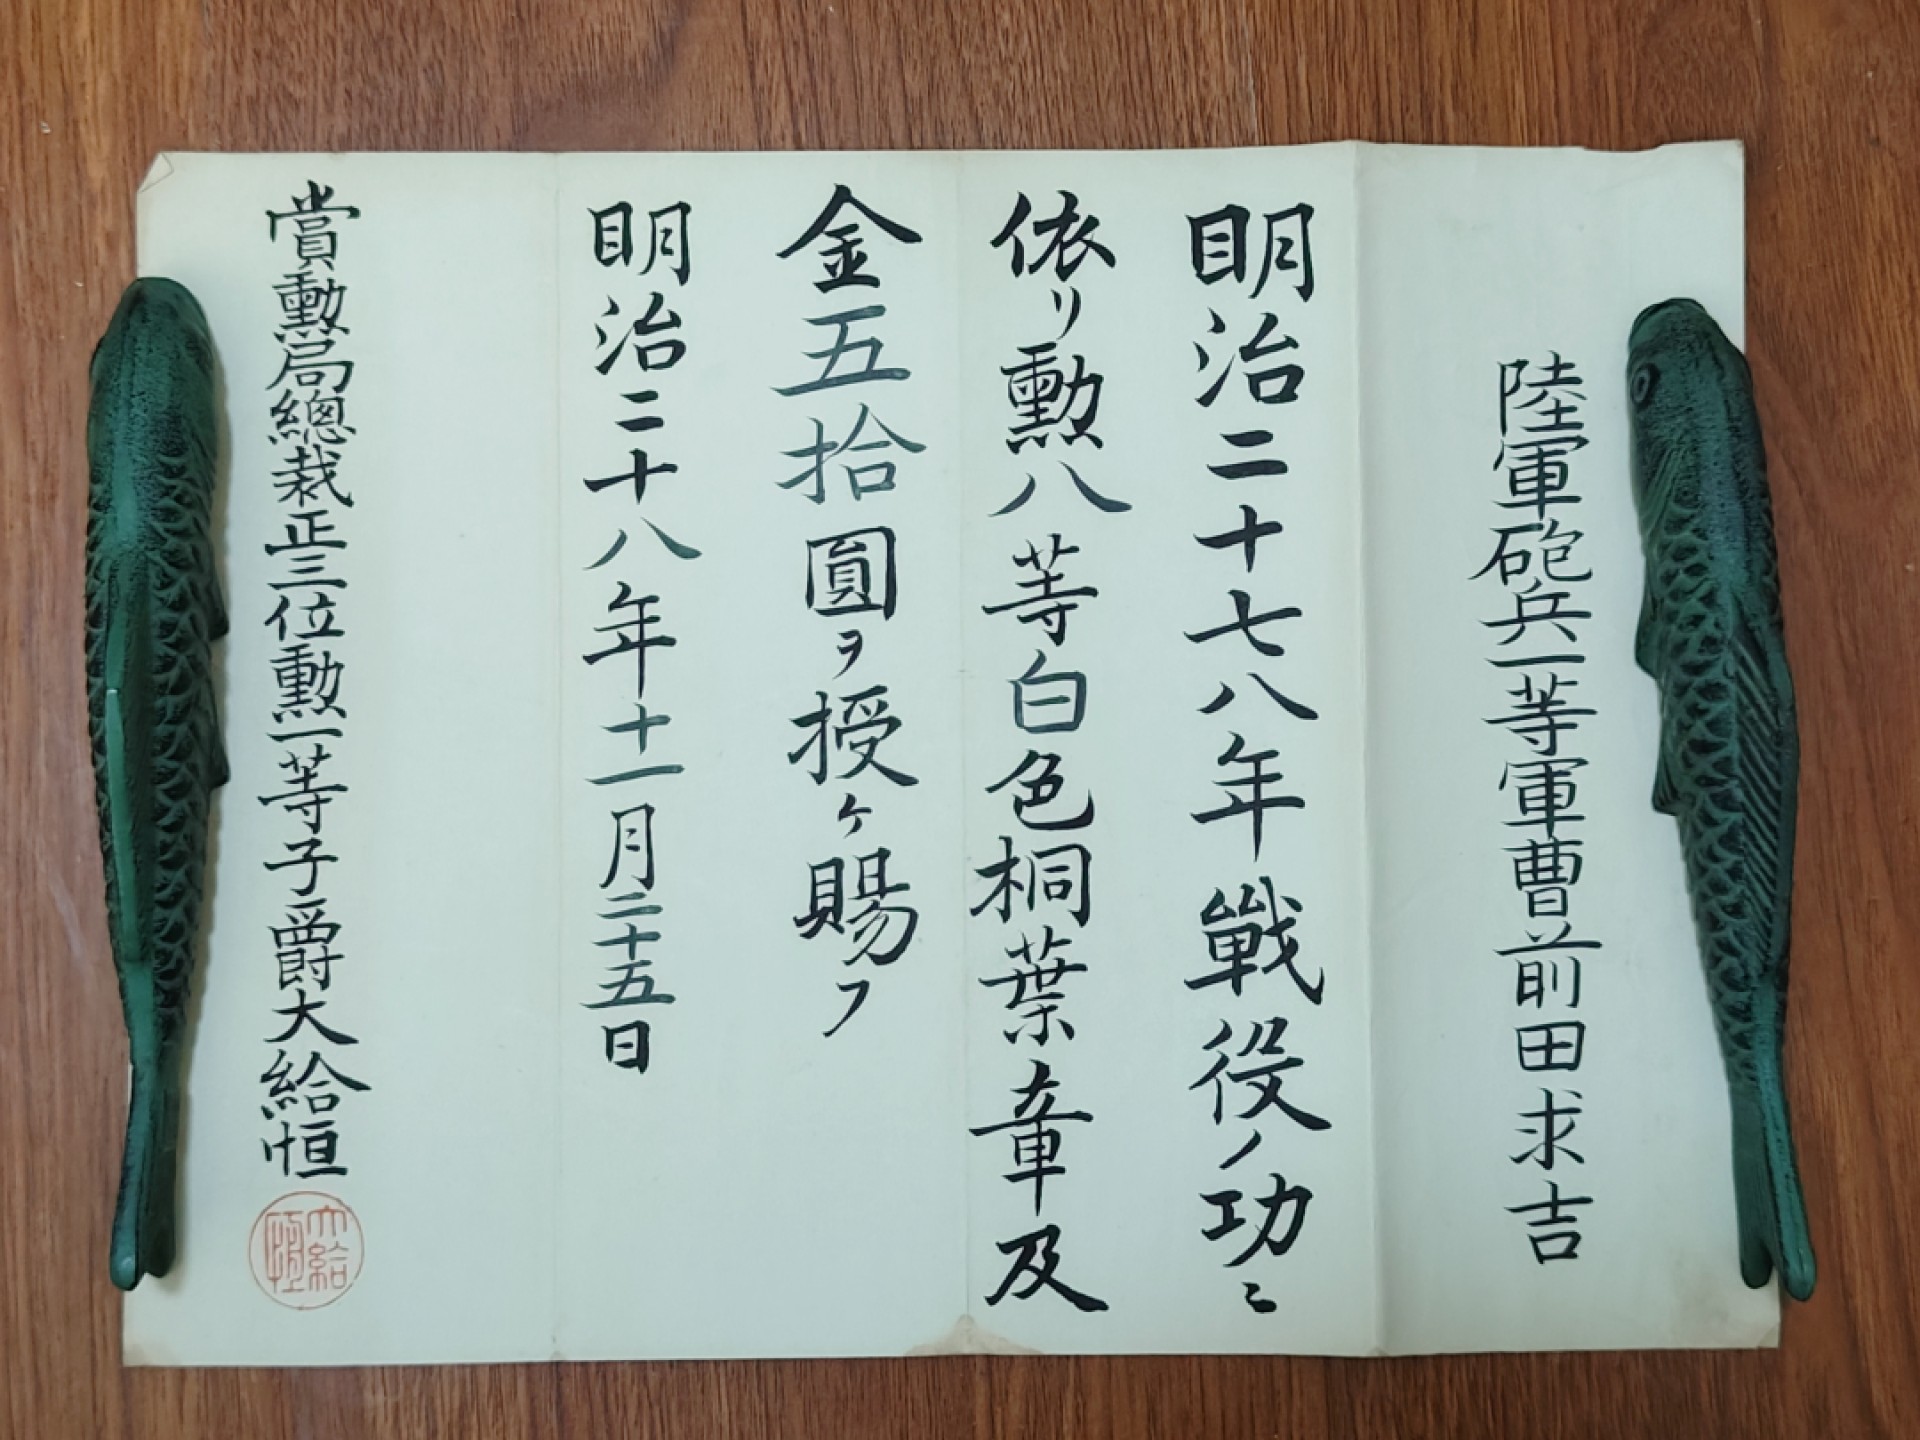 陸軍砲兵一等軍曹前田求吉
明治二十七八年戰役ノ功ニ
依リ勲八等白色桐葉章及
金五拾圓ヲ授ケ賜フ
明治二十八年十一月二十五日
賞勲局總裁正三位勲一等子爵大給恒
大給恒